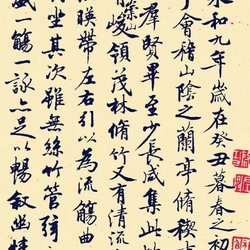 永和九年歲在癸丑暮春之初
于會稽山陰之蘭亭脩稧
群賢畢至少長咸集此
峻領茂林脩竹又有清流
暎帶左右引以為流觴曲
列坐其次雖無絲竹管弦
盛一觴一詠亦足以暢敘幽情